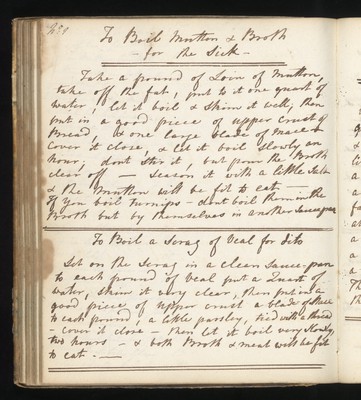 No. 1
To Boil Mutton & Broth
- for the Sick -
Take a pound of Loin of Mutton,
take off the fat, put to it one quart of
water, let it boil & skim it well, then
put in a good piece of upper crust of
Bread, & one large blade of mace
cover it close, & let it boil slowly an
hour; dont stir it, but pour the Broth
clear off — Season it with a little Salt
& the Mutton will be fit to eat. —
If you boil turnips - dont boil them in the
Broth but by themselves in another Saucepan
To Boil a Scrag of Veal for dito
Set on the Scrag in a clean Sauce-pan
to each pound of Veal put a Quart of
water, skim it very clear, then put in a
good piece of upper crust a blade of Mace
to each pound, a little parsley, tied with a thread
- cover it close - then let it boil very Slowly,
two hours - & both Broth & meat will be fit
to eat. —